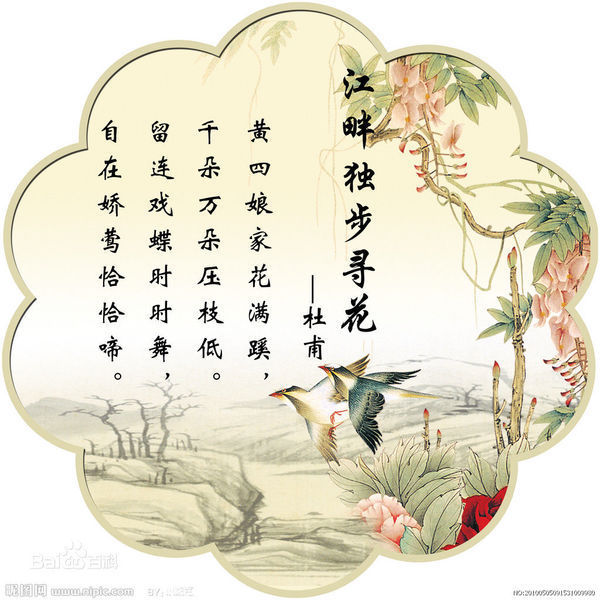 江畔独步寻花
—杜甫
黄四娘家花满蹊，
千朵万朵压枝低。
留连戏蝶时时舞，
自在娇莺恰恰啼。
Bai百科
昵图网
www.nipic.com
NO:20100505091531009980